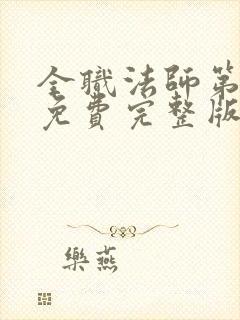 全職法師第
免費完整版
樂燕